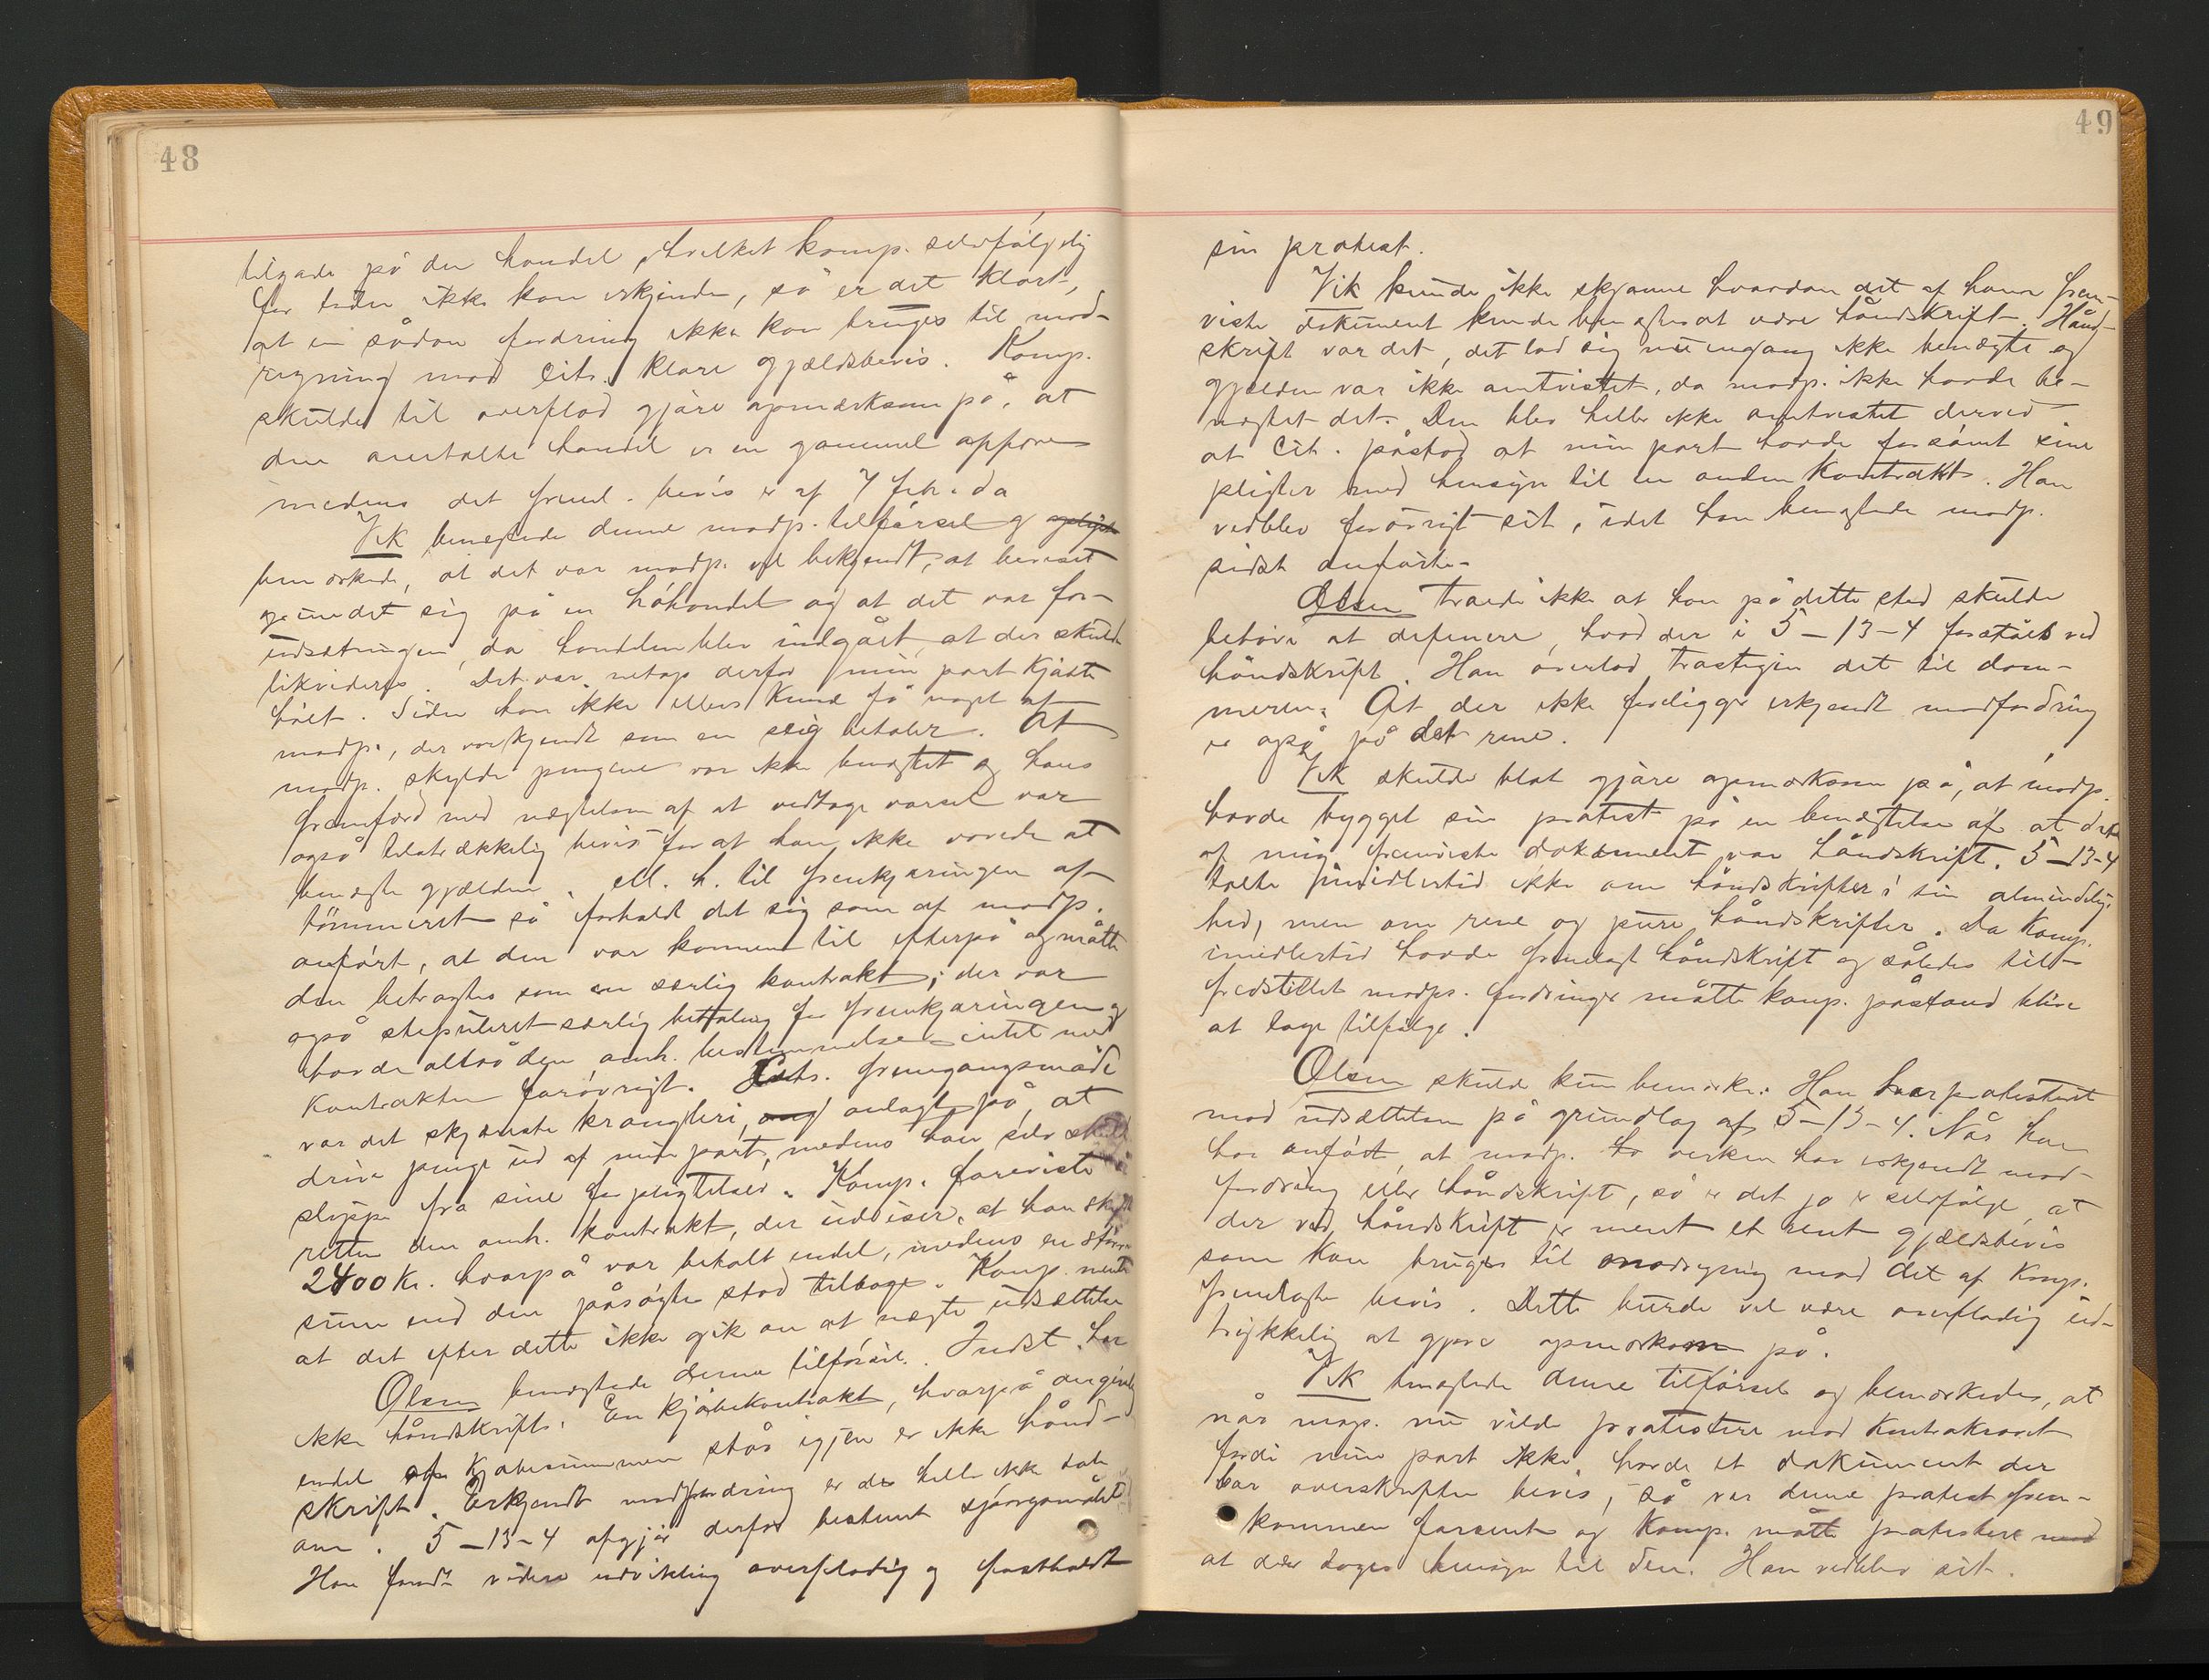 48
tilgode på den handel, hvilket komp. selvfölgelig
for tiden ikke kan erkjende, så er det klart,
at en sådan fordring ikke kan bruges til mod-
regning mod Cits. klare gjældsbevis. Komp.
skulde til overflod gjöre opmærksom på, at
den omtalte handel er en gammel affære
medens det freml. bevis er af 7 febr. da
Vik benegtede denne modp. tilförsel og
bemærkede, at det var modp. vel bekjendt, at beviset
grundet sig på en höhandel og at det var for-
udsætningen, da handelen blev indgået, at der skulde
likvideres. Det var netop derfor min part kjöbte
höet. Siden han ikke ellers kunde få noget af
modp., der var kjendt som en seig betaler. At
modp. skylde pengene var ikke benegtet og hans
fremfærd med negtelsen af at vedtage varsel var
også tilstrækkelig bevis for at han ikke vovede at
benegte gjælden. M. h. til fremkjöringen af
tömmeret så forholdt det sig som af modp.
anfört, at den var kommen til efterpå og måtte
den betragtes som en særlig kontrakt; der var
også stipuleret særlig betaling for fremkjöringen og
havde altså den omh. bestemmelse intet med
kontrakten forövrigt. Cits. fremgangsmåde
var det skjæreste krangleri, anlagt på, at
drive penge ud af min part, medens han selv skulde
slippe fra sine forpligtelser. Komp. foreviste
retten den omh. kontrakt, der udviser, at han skyldte
2400 Kr. hvorpå var betalt endel, medens en större
sum end den påsögte stod tilbage. Komp. mente
at det efter dette ikke gik an at negte udsættelse
Olsen benegtede denne tilförsel. Indst. har
ikke håndskrift. En kjöbekontrakt, hvorpå angivelig
endel af kjöbesummen står igjen er ikke hånd-
skrift. Erkjendt modfordring er der heller ikke tale
om. 5-13-4 afgjör derfor bestemt spörgsmålet
Han fandt videre udvikling overflödig og fastholdt
49
sin protest.
Vik kunde ikke skjönne hvordan det af ham frem-
viste dokument kunde benegtes at være håndskrift. Hånd-
skrift var det, det lod sig nu engang ikke benegte og
gjælden var ikke omtvistet, da modp. ikke havde be-
negtet det. Den blev heller ikke omtvistet derved
at Cit. påstod at min part havde forsömt sine
pligter med hensyn til en anden kontrakt. Han
vedblev forövrigt sit, idet han benegtede modp.
sidst anförte.
Olsen troede ikke at han på dette sted skulde
behöve at definere, hvad der i 5-13-4 forståes ved
håndskrift. Han overlod tröstigen det til dom-
meren. At der ikke foreligger erkjendt modfordring
er også på det rene.
Vik skulde blot gjöre opmærksom på, at modp.
havde bygget sin protest på en benegtelse af at det
af mig fremviste dokument var håndskrift. 5-13-4
talte imidlertid ikke om håndskrifter i sin almindelig-
hed, men om rene og pure håndskrifter. Da Komp.
imidlertid havde fremlagt håndskrift og således til-
fredstillet modps. fordringer måtte komp. påstand blive
at tage tilfölge.
Olsen skulde kun bemærke: Han har protesteret
mod udsættelsen på grundlag af 5-13-4. Når han
har anfört, at modp. hverken har erkjendt mod-
fordring eller håndskrift, så er det jo en selvfölge, at
der ved håndskrift er ment et rent gjældsbevis
som kan bruges til modregning mod det af Komp.
fremlagte bevis. Dette burde vel være overflödig ud-
trykkelig at gjöre opmærksom på.
Vik benegtede denne tilförsel og bemærkede, at
når modp. nu vilde protestere mod kontrakten
fordi min part ikke havde et dokument der
bar overskriften bevis, så var denne protest frem-
kommen forsent og Komp. måtte protestere mod
at der toges hensyn til den. Han vedblev sit.